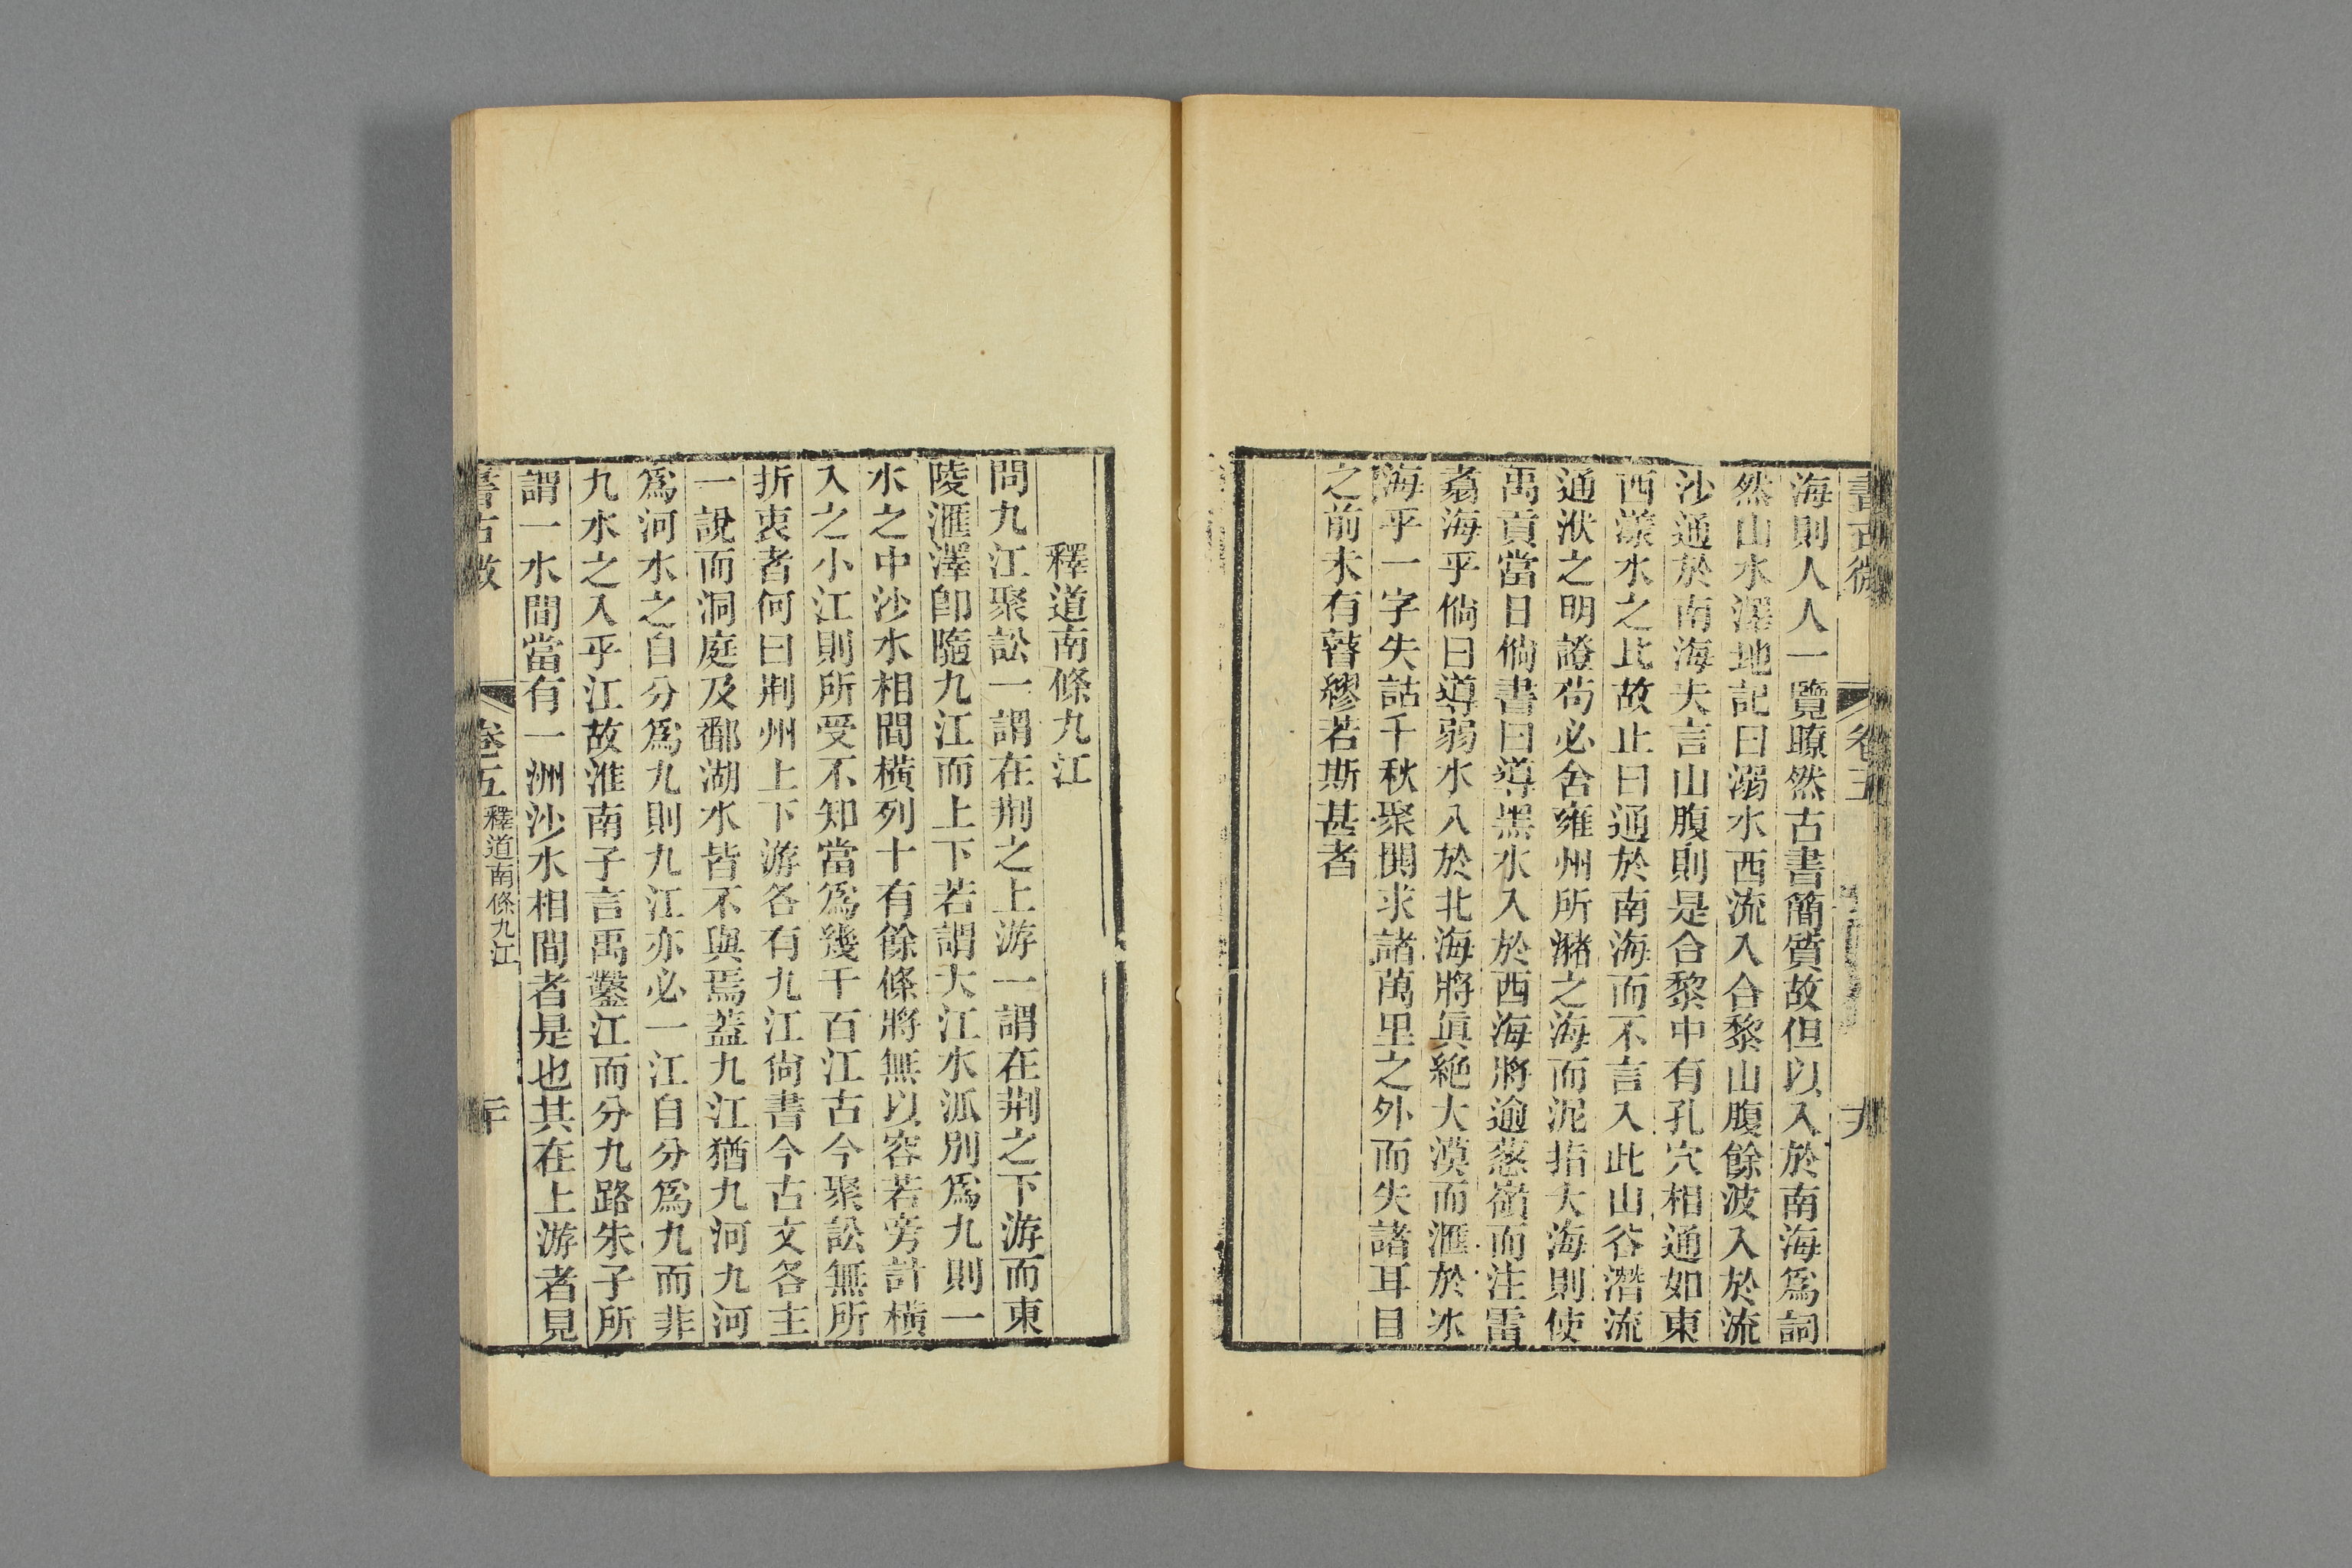 書古微 卷五 十九
海則人人一覽瞭然古書簡質故但以入於南海爲詞
然山水澤地記曰溺水西流入合黎山腹餘波入於流
沙通於南海夫言山腹則是合黎中有孔穴相通如東
西漾水之比故止曰通於南海而不言入此山谷潛流
通洑之明證苟必舍雍州所瀦之海而泥指大海則使
禹貢當日倘書曰導黑水入於西海將逾蔥嶺而注雷
翥海乎倘曰導弱水入於北海將眞絶大漠而滙於冰
海乎一字失詁千秋聚閧求諸萬里之外而失諸耳目
之前未有瞽繆若斯甚者
釋道南條九江
問九江聚訟一謂在荆之上游一謂在荆之下游而東
陵滙澤卽隨九江而上下若謂大江水派別爲九則一
水之中沙水相間橫列十有餘條將無以容若旁計橫
入之小江則所受不知當爲幾千百江古今聚訟無所
折衷者何曰荆州上下游各有九江尙書今古文各主
一說而洞庭及鄱湖水皆不與焉蓋九江猶九河九河
爲河水之自分爲九則九江亦必一江自分爲九而非
九水之入乎江故淮南子言禹鑿江而分九路朱子所
謂一水間當有一洲沙水相間者是也其在上游者見
書古微 卷五 釋道南條九江 二十